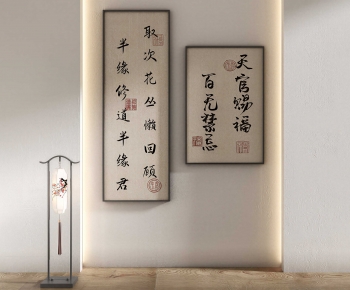 取次花丛懒回顾
半缘修道半缘君
天官赐福
百无禁忌